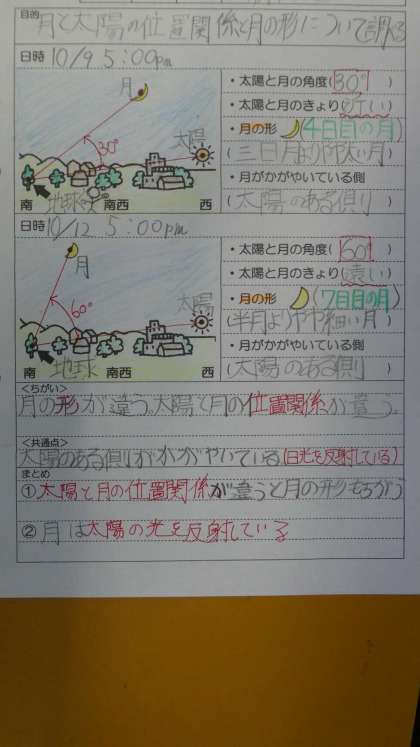 目的 月と太陽の位置関係と月の形について調べる
日時 10/9 5:00pm
月
太陽
30°
地球
南 南西 西
・太陽と月の角度(30°)
・太陽と月のきょり(近い)
・月の形 (4日目の月)
(三日月よりやや太い月)
・月がかがやいている側
(太陽のある側)
日時 10/12 5:00pm
月
太陽
60°
地球
南 南西 西
・太陽と月の角度(60°)
・太陽と月のきょり(遠い)
・月の形 (7日目の月)
(半月よりやや細い月)
・月がかがやいている側
(太陽のある側)
<ちがい>
月の形が違う。太陽と月の位置関係が違う。
<共通点>
太陽のある側がかがやいている(日光を反射している)
まとめ
①太陽と月の位置関係が違うと月の形もちがう
②月は太陽の光を反射している